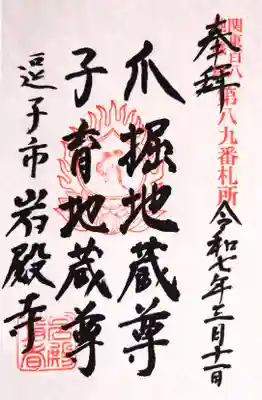 奉拝
第八九番札所
令和七年三月十一日
爪掘地蔵尊
子育地蔵尊
逗子市岩殿寺